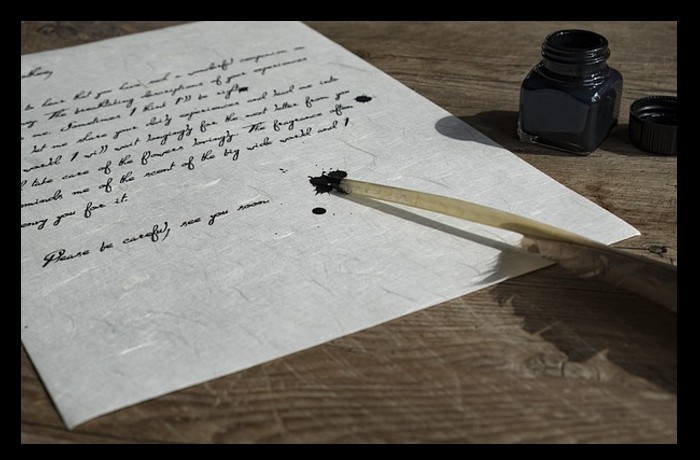 to hear that you have found a wonderful companion on
The breathtaking descriptions of your experiences
me. Sometimes I think I'll be right
let me share your daily experiences and send me into
world. I will wait longingly for the next letter from you
take care of the flowers lovingly. The fragrance often
reminds me of the scent of the big wide world and I
envy you for it.
Please be careful, see you soon.